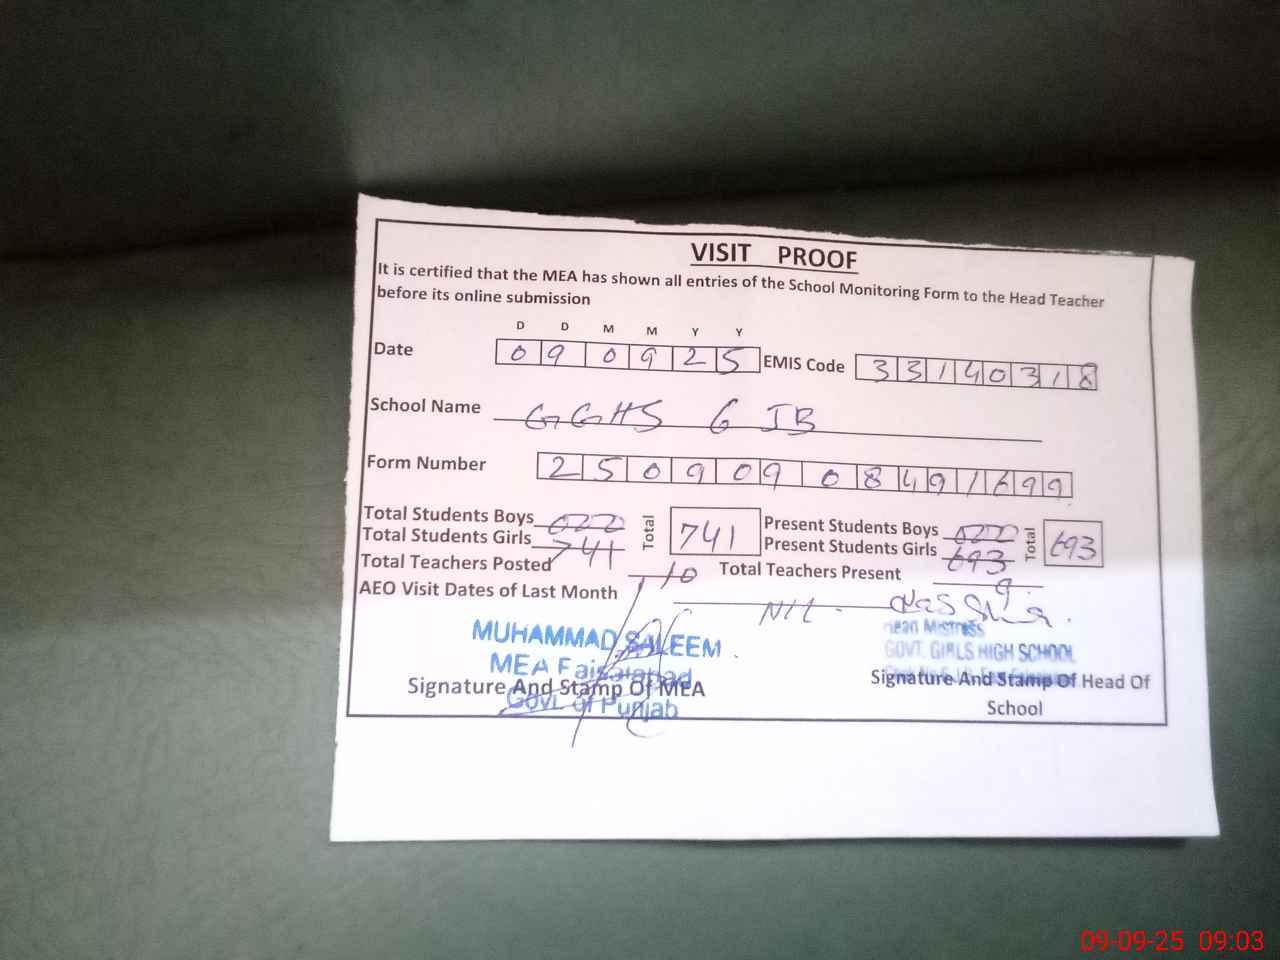 VISIT PROOF
It is certified that the MEA has shown all entries of the School Monitoring Form to the Head Teacher
before its online submission
D D M M Y Y
Date 0 9 0 9 2 5 EMIS Code 3 3 1 4 0 3 1 8
School Name GGHS 6 JB
Form Number 2 5 0 9 0 9 0 8 4 9 1 6 9 9
Total Students Boys Total 741 Present Students Boys Total 693
Total Students Girls 741 Present Students Girls 693
Total Teachers Posted 10 Total Teachers Present 9
AEO Visit Dates of Last Month NIL
MUHAMMAD SALEEM
MEA Faisalabad
Govt. of Punjab
Signature And Stamp Of MEA
Head Mistress
GOVT. GIRLS HIGH SCHOOL
Signature And Stamp Of Head Of
School
09-09-25 09:03